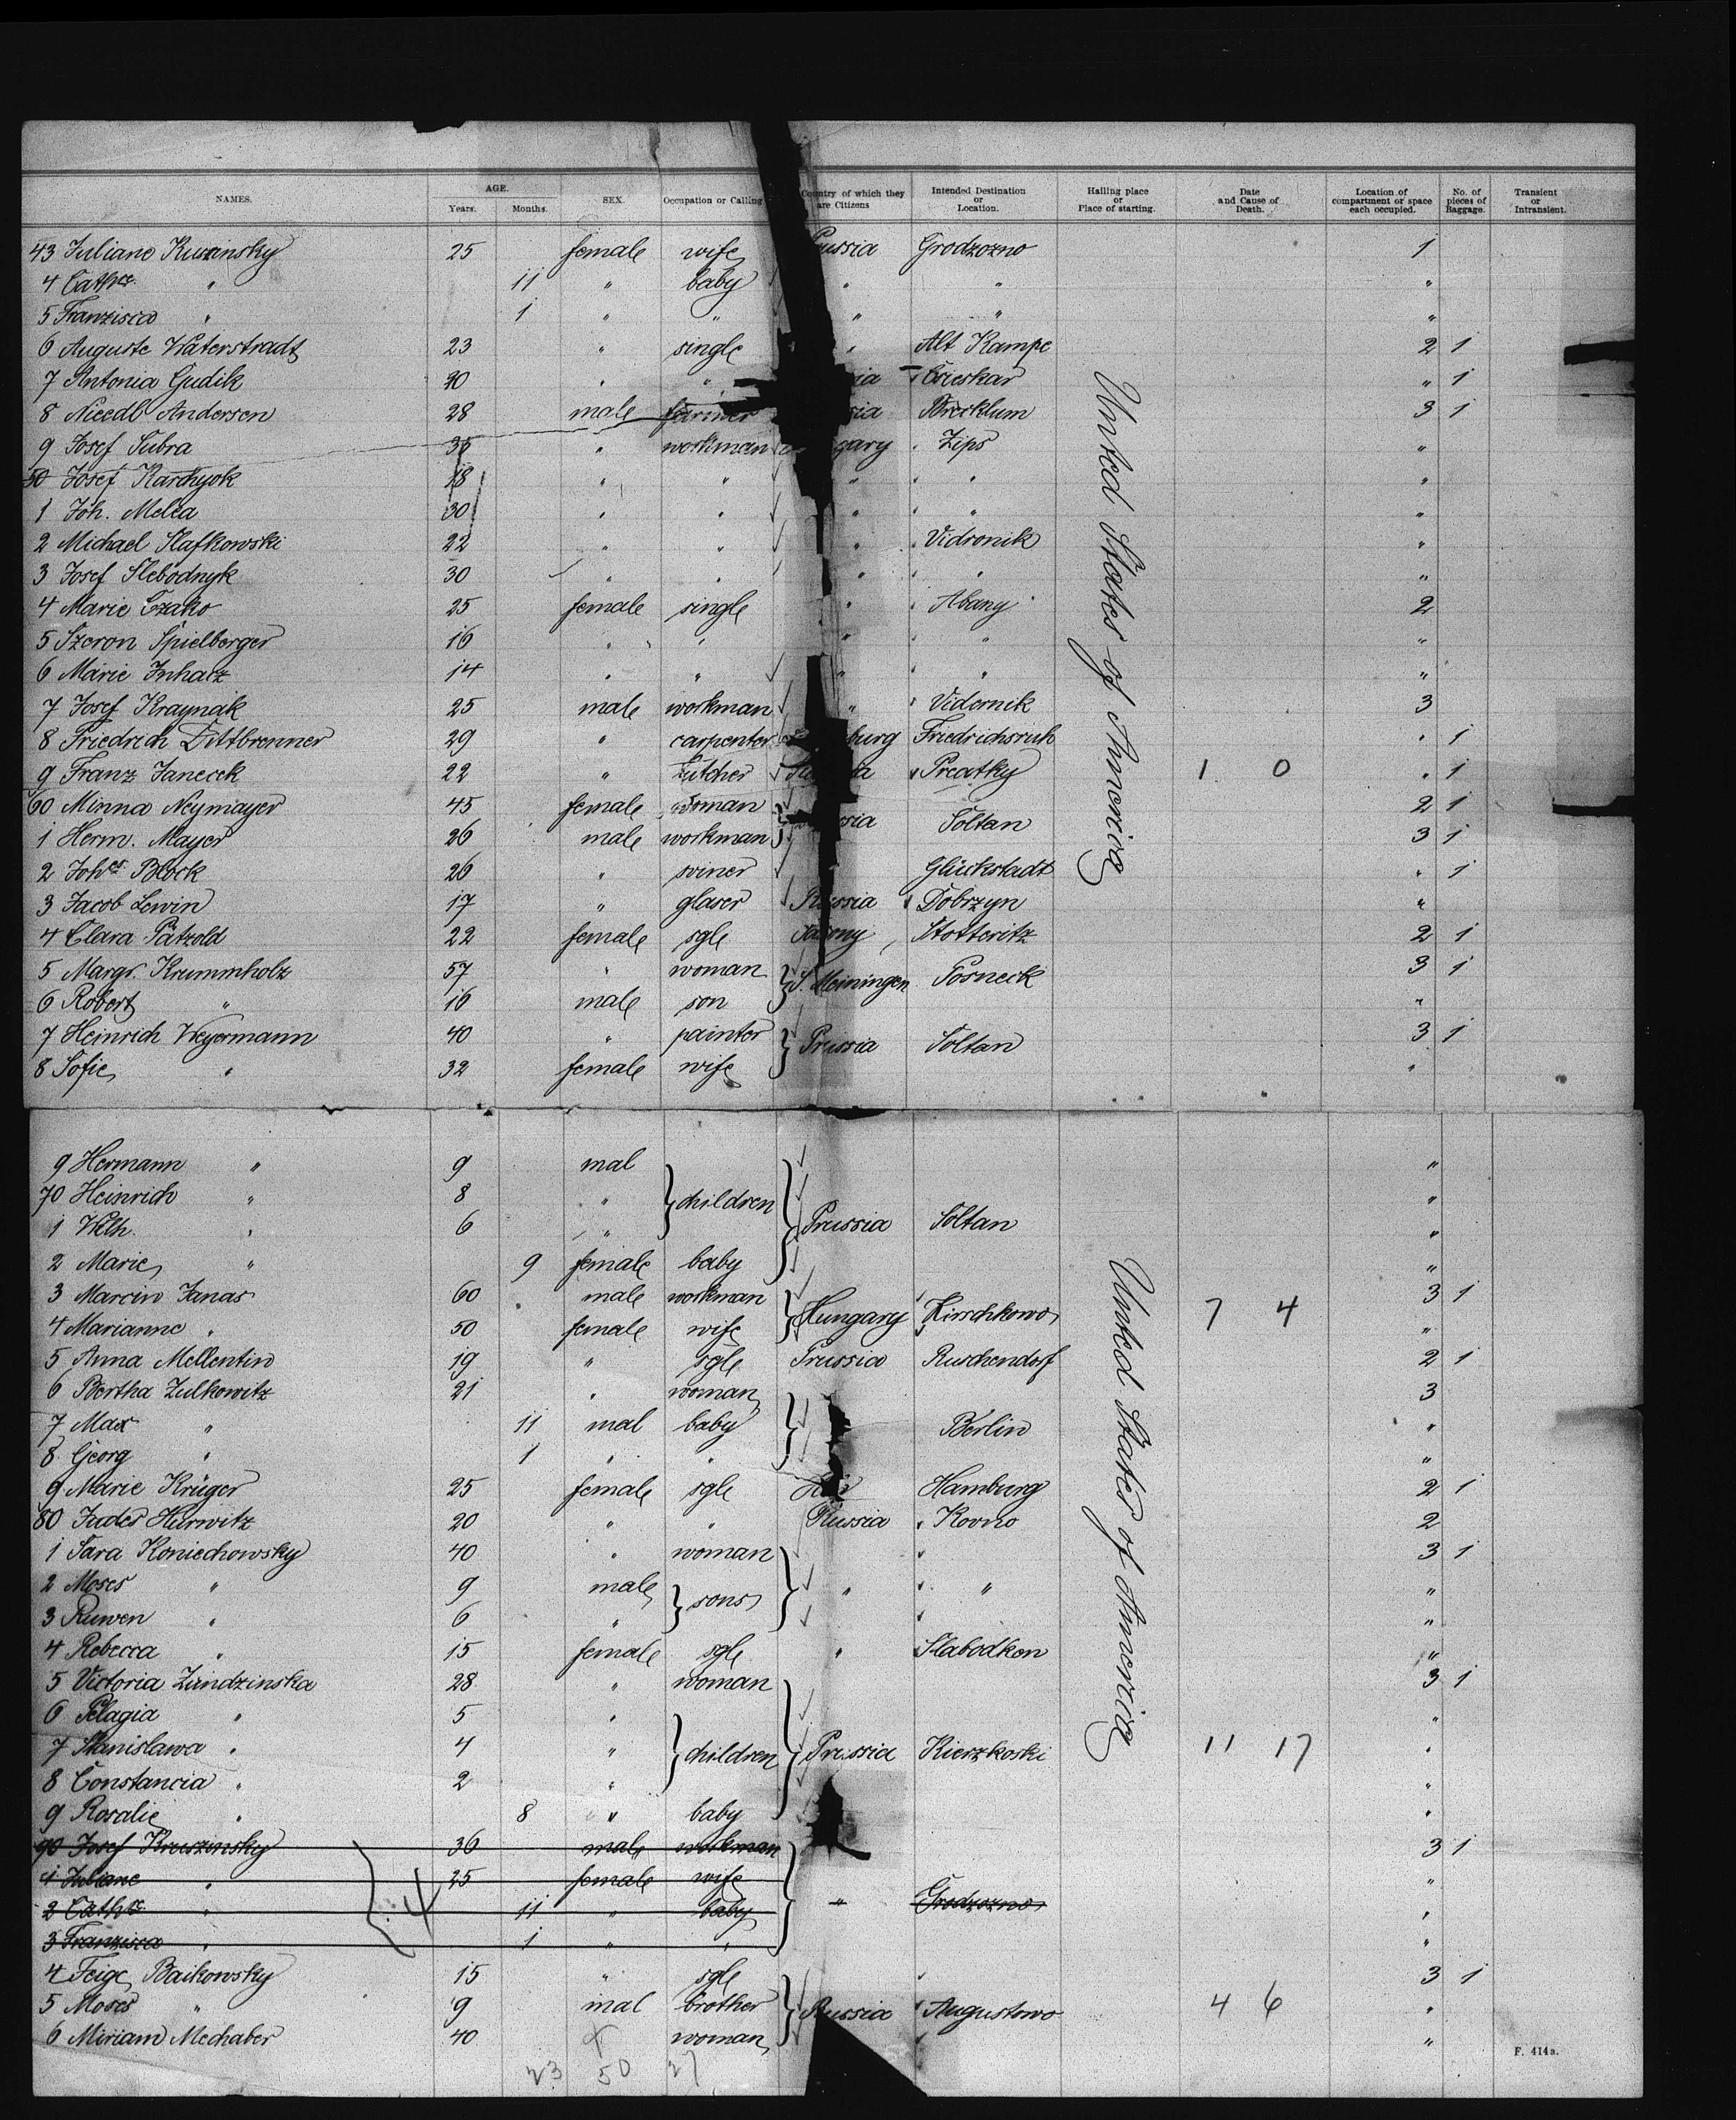 NAMES. AGE. Years. Months. SEX. Occupation or Calling Country of which they are Citizens Intended Destination or Location. Hailing place or Place of starting. Date and Cause of Death. Location of compartment or space each occupied. No. of pieces of Baggage. Transient or Intransient.
43 Juliane Kuszinsky 25 female wife Prussia Grodzozno 1
4 Cathe " 11 " baby " " "
5 Franzisca " 1 " " " " "
6 Auguste Waterstradt 23 " single " Alt Kampe 2 1
7 Antonia Gudik " " " 1
8 Needl Andersen 28 male farmer Brecklum 3 1
9 Josef Subra 35 " workman Hungary Zips "
50 Josef Karchyok 18 " " " " "
1 Joh. Melca 30 " " " " "
2 Michael Slafkowski 22 " " " Vidronik "
3 Josef Slebodnyk 30 " " " " "
4 Marie Czako 25 female single " Abany 2
5 Szeron Spielberger 16 " " " " "
6 Marie Inhatz 14 " " " " "
7 Josef Kraynak 25 male workman " Vidernik 3
8 Friedrich Dittbrenner 29 " carpenter burg Friedrichsruh " 1
9 Franz Janecek 22 " butcher Preatky 1 0 " 1
60 Minna Neymayer 45 female woman 2 1
1 Herm. Mayer 26 male workman Prussia Soltan 3 1
2 Johes Block 26 " Glückstadt " 1
3 Jacob Lewin 17 " glaser Russia Dobrzyn "
4 Clara Pätzold 22 female sgle Saxony Stotteritz 2 1
5 Margr. Krummholz 57 " woman S. Meiningen Posneck 3 1
6 Robert " 16 male son "
7 Heinrich Weyermann 40 " painter Prussia Soltan 3 1
8 Sofie " 32 female wife "
United States of America
9 Hermann " 9 mal "
70 Heinrich " 8 " children "
1 Wilh. " 6 " Prussia Soltan "
2 Marie " 9 female baby "
3 Marcin Janas 60 male workman Hungary Kirschkowo 7 4 3 1
4 Marianne " 50 female wife "
5 Anna Mellentin 19 " sgle Prussia Ruschendorf 2 1
6 Bertha Zulkowitz 21 " woman 3
7 Max " 11 mal baby Berlin "
8 Georg " 1 " " "
9 Marie Krüger 25 female sgle Hamburg 2 1
80 Judes Hurwitz 20 " " Russia Kovno 2
1 Sara Koniechowsky 40 " woman 3 1
2 Moses " 9 male sons " " "
3 Ruwen " 6 " "
4 Rebecca " 15 female sgle " Slabodken "
5 Victoria Zandzinska 28 " woman 3 1
6 Pelagia " 5 " "
7 Stanislawa " 4 " children Prussia Kierzkoski 11 17 "
8 Constancia " 2 " "
9 Rosalie " 8 " baby "
90 Josef Kruszinsky 36 male workman 3 1
1 Juliane " 25 female wife "
2 Cathe " 11 " baby " Grodzozno "
3 Franzisca " 1 " " "
4
4 Feige Baikowsky 15 " sgle 3 1
5 Moses " 9 mal brother Russia Augustowo 4 6 "
6 Miriam Mechaber 40 woman "
United States of America
23 50 27
F. 414a.